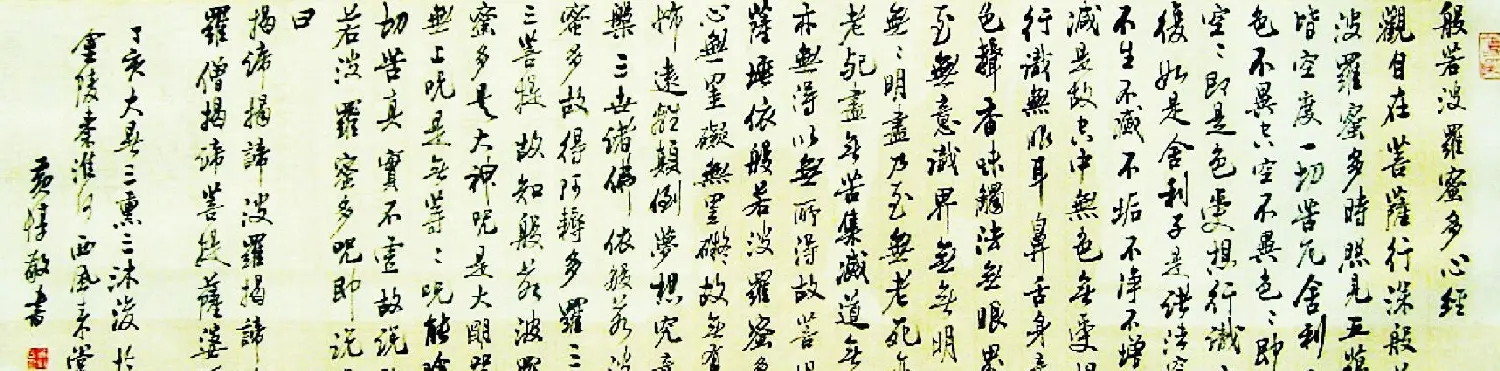 般若波羅蜜多心經
觀自在菩薩行深般
波羅蜜多時照見五蘊
皆空度一切苦厄舍利
色不異空空不異色〻即
空〻即是色受想行識
復如是舍利子是諸法空
不生不滅不垢不淨不增
減是故空中無色無受想
行識無眼耳鼻舌身意
色聲香味觸法無眼界
至無意識界無無明
無〻明盡乃至無老死亦
老死盡無苦集滅道無
亦無得以無所得故菩提
薩埵依般若波羅蜜多
心無罣礙無罣礙故無有
怖遠離顛倒夢想究竟
槃三世諸佛依般若波
蜜多故得阿耨多羅三
三菩提故知般若波羅
蜜多是大神咒是大明咒
無上咒是無等〻咒能除
切苦真實不虛故說
若波羅蜜多咒即說
曰
揭諦揭諦波羅揭諦
羅僧揭諦菩提薩婆
丁亥大暑三熏三沐後於
金陵秦淮河西風來堂
黄惇敬書